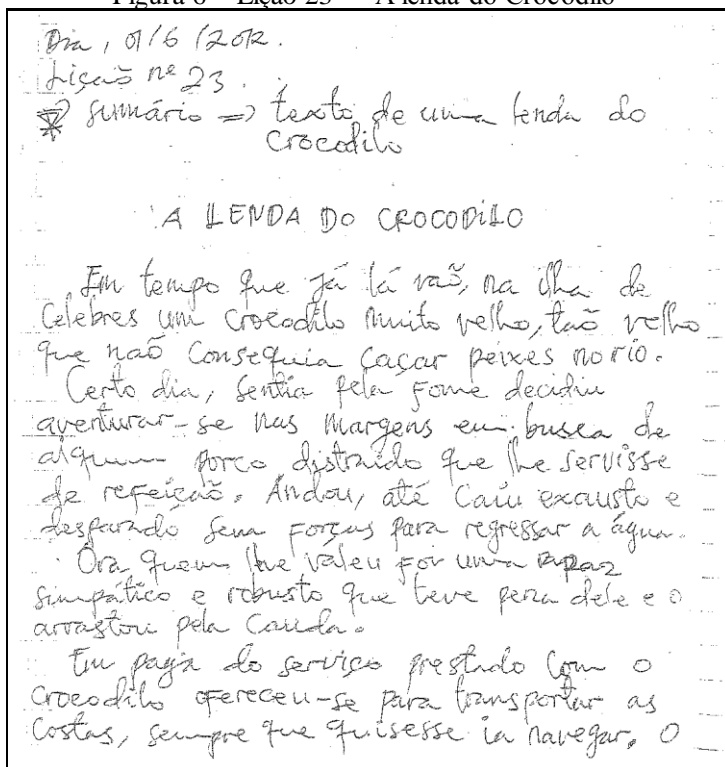 Figura 8 – Lição 23 – A lenda do Crocodilo
Dia, 01/6/2012.
Lição nº 23.
Sumário => texto de uma lenda do
crocodilo
A LENDA DO CROCODILO
Em tempo que já lá vaõ, na ilha de
Celebres um crocodilo muito velho, taõ velho
que naõ Conseguia caçar peixes no rio.
Certo dia, sentia pela fome decidiu
aventurar-se nas margens em busca de
algum porco distraído que lhe servisse
de refeiçaõ. Andou, até Caiu exausto e
desparado sem forças para regressar a água.
Ora quem lhe valeu foi um rapaz
simpático e robusto que teve pena dele e o
arrastou pela Cauda.
Em paga do serviço prestado com o
crocodilo ofereceu-se para transportar as
Costas, sempre que quisesse ia navegar. O